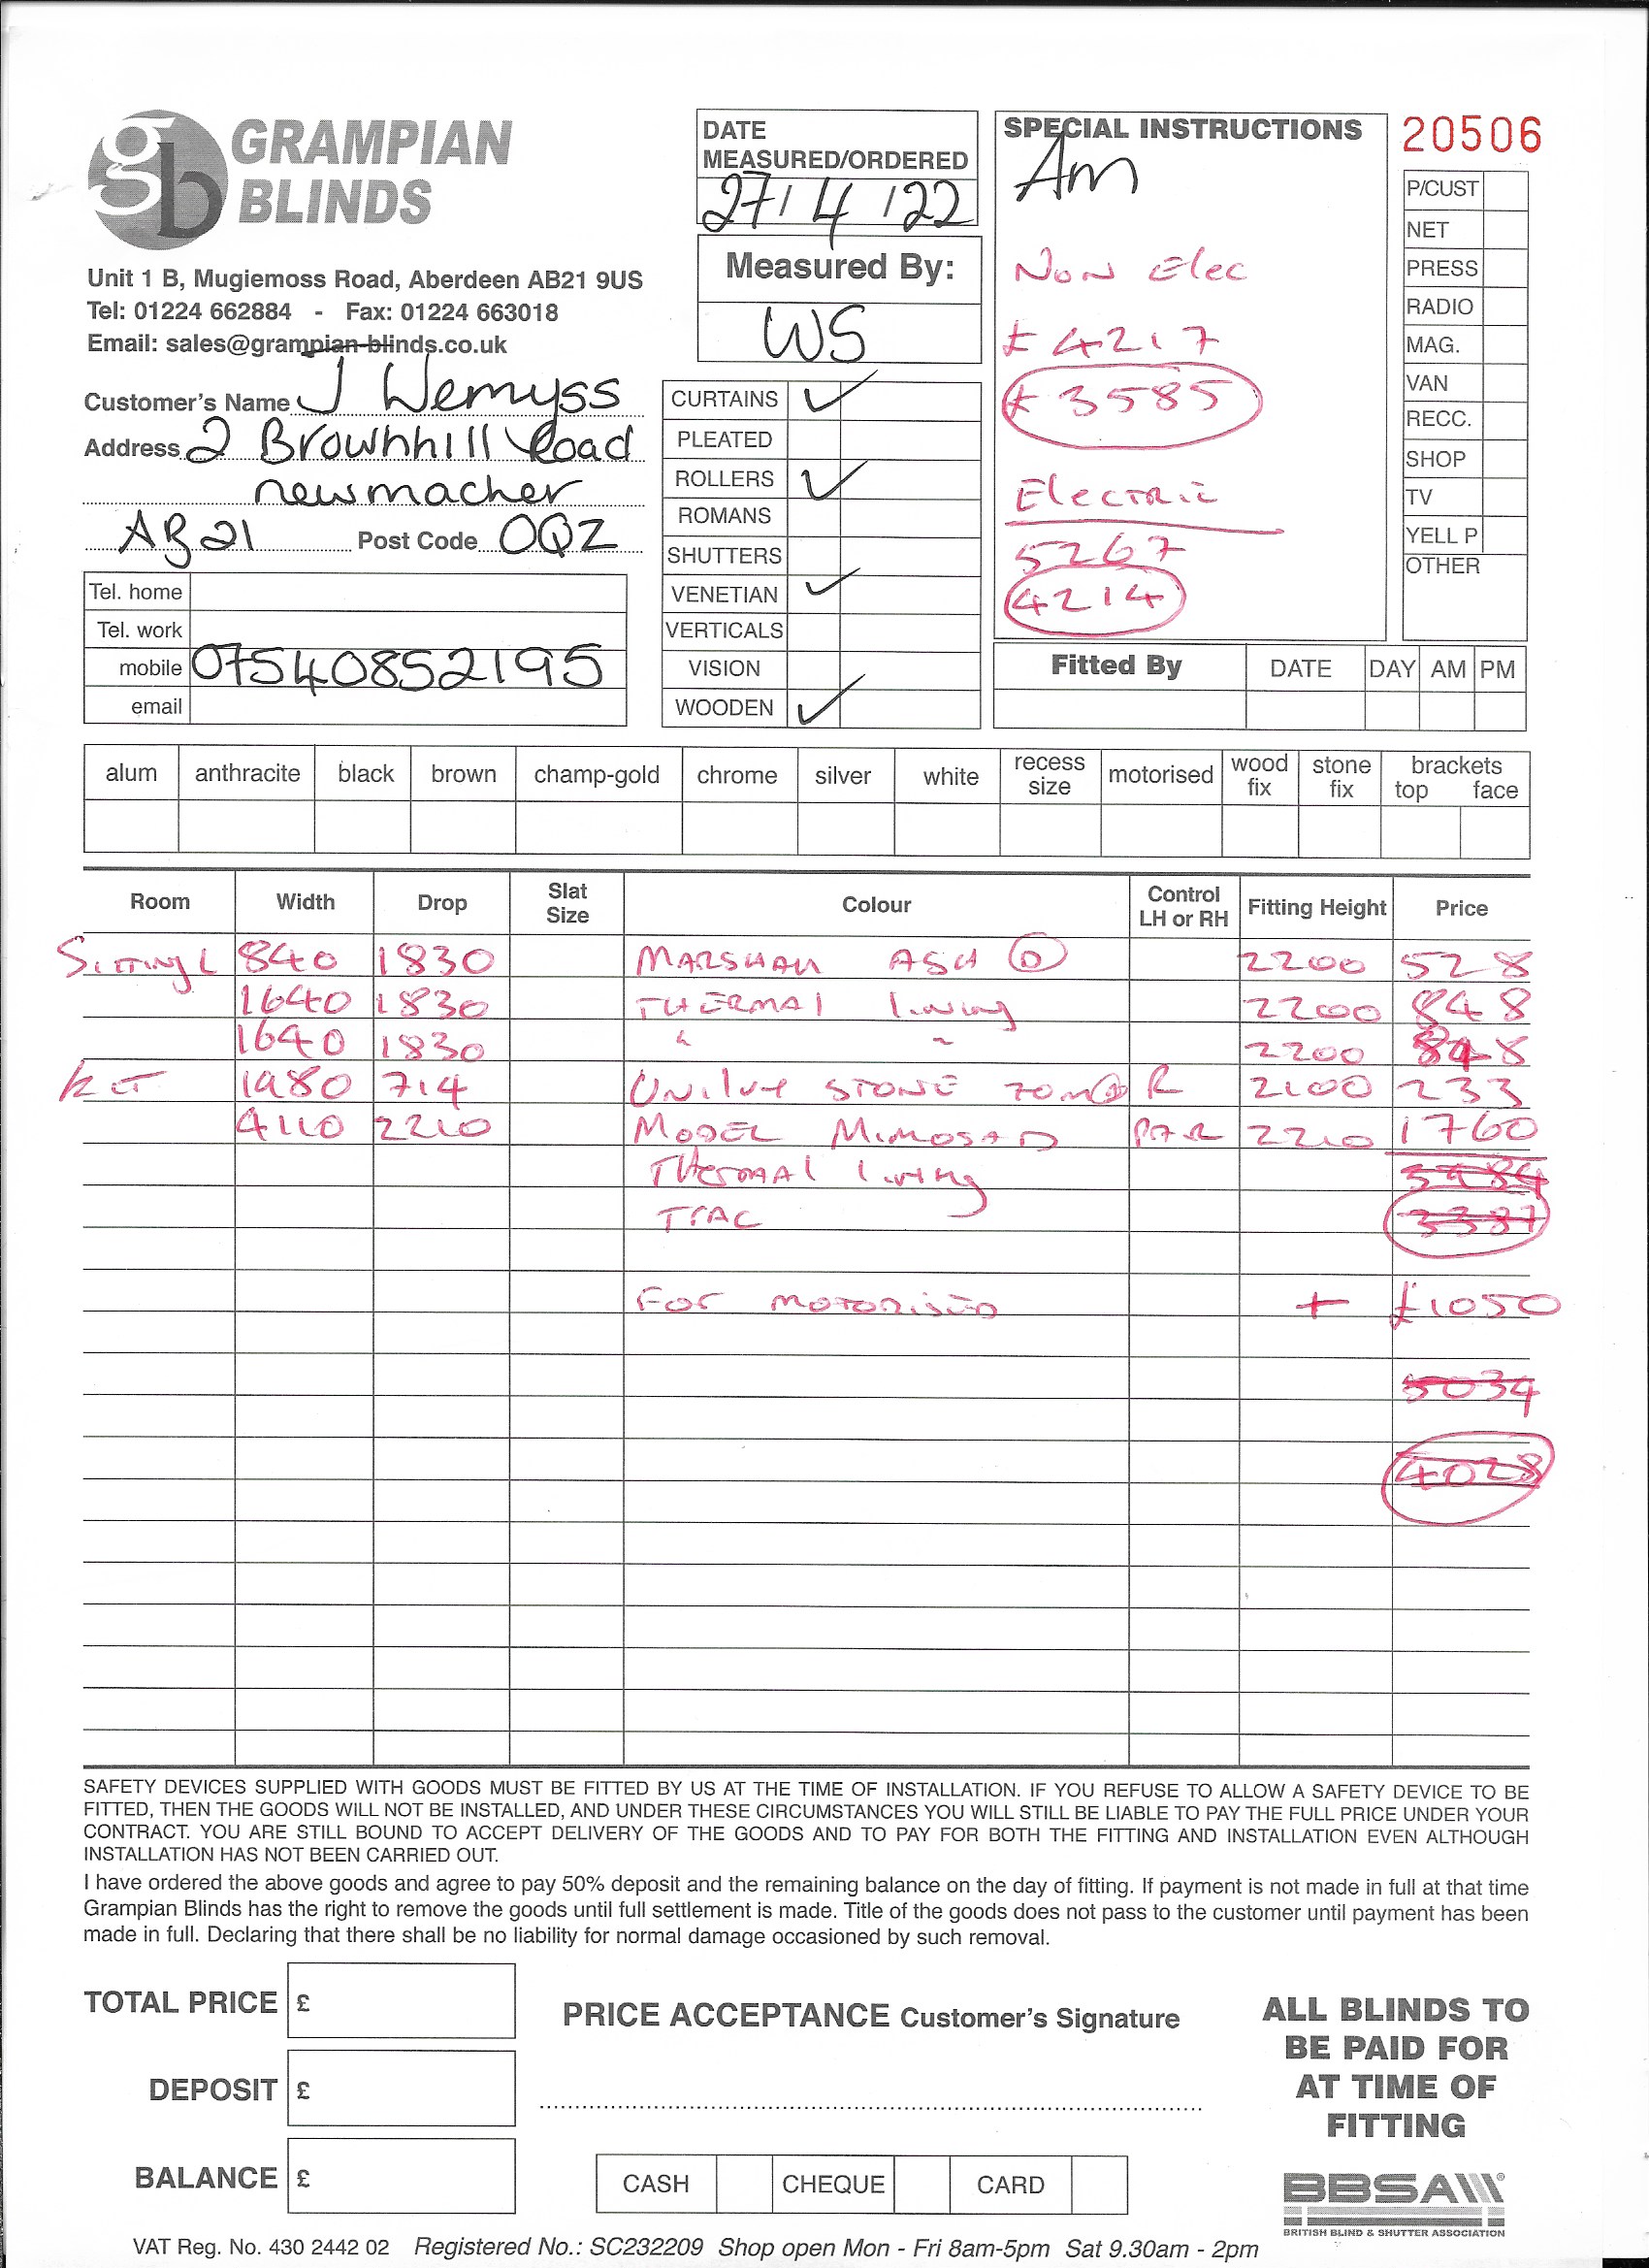 GRAMPIAN
BLINDS
Unit 1 B, Mugiemoss Road, Aberdeen AB21 9US
Tel: 01224 662884 - Fax: 01224 663018
Email: sales@grampian-blinds.co.uk
Customer's Name J Wemyss
Address 2 Brownhill Road
newmacher
AB21 Post Code 0QZ
Tel. home
Tel. work
mobile 07540852195
email
DATE
MEASURED/ORDERED
27/4/22
Measured By:
WS
CURTAINS ✓
PLEATED
ROLLERS ✓
ROMANS
SHUTTERS
VENETIAN ✓
VERTICALS
VISION
WOODEN ✓
SPECIAL INSTRUCTIONS
Am
Non Elec
£4217
£3585
Electric
5267
4214
20506
P/CUST
NET
PRESS
RADIO
MAG.
VAN
RECC.
SHOP
TV
YELL P
OTHER
Fitted By DATE DAY AM PM
alum anthracite black brown champ-gold chrome silver white recess size motorised wood fix stone fix brackets top face
Room Width Drop Slat Size Colour Control LH or RH Fitting Height Price
Sitting L 840 1830 MARSHAM ASH D 2200 528
1640 1830 THERMAL lining 2200 848
1640 1830 " " 2200 848
KIT 1980 714 STONE R 2100 233
4110 2210 MODEL MIMOSA D 2210 1760
THERMAL lining
3984
3387
For motorised + £1050
5034
4028
SAFETY DEVICES SUPPLIED WITH GOODS MUST BE FITTED BY US AT THE TIME OF INSTALLATION. IF YOU REFUSE TO ALLOW A SAFETY DEVICE TO BE
FITTED, THEN THE GOODS WILL NOT BE INSTALLED, AND UNDER THESE CIRCUMSTANCES YOU WILL STILL BE LIABLE TO PAY THE FULL PRICE UNDER YOUR
CONTRACT. YOU ARE STILL BOUND TO ACCEPT DELIVERY OF THE GOODS AND TO PAY FOR BOTH THE FITTING AND INSTALLATION EVEN ALTHOUGH
INSTALLATION HAS NOT BEEN CARRIED OUT.
I have ordered the above goods and agree to pay 50% deposit and the remaining balance on the day of fitting. If payment is not made in full at that time
Grampian Blinds has the right to remove the goods until full settlement is made. Title of the goods does not pass to the customer until payment has been
made in full. Declaring that there shall be no liability for normal damage occasioned by such removal.
TOTAL PRICE £
DEPOSIT £
BALANCE £
PRICE ACCEPTANCE Customer's Signature
CASH CHEQUE CARD
ALL BLINDS TO
BE PAID FOR
AT TIME OF
FITTING
BBSA
BRITISH BLIND & SHUTTER ASSOCIATION
VAT Reg. No. 430 2442 02 Registered No.: SC232209 Shop open Mon - Fri 8am-5pm Sat 9.30am - 2pm